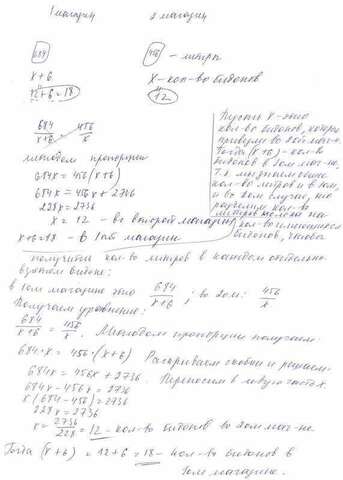 1 магазин 2 магазин
684 456 - литры
x+6 x - кол-во бидонов
12+6=18 12
684/(x+6) = 456/x
методом пропорции
684x = 456(x+6)
684x = 456x + 2736
228x = 2736
x = 12 - во второй магазин
x+6=18 - в 1ый магазин
Пусть x - это
кол-во бидонов, которые
привезли во 2ой маг-н.
Тогда (x+6) - кол-во
бидонов в 1ом маг-не.
Т.к. мы знаем общее
кол-во литров и в 1ом,
и во 2ом случае, то
разделим кол-во
литров молока на
кол-во имеющихся
бидонов, чтобы
получить кол-во литров в каждом отдельно
взятом бидоне:
в 1ом магазине это 684/(x+6); во 2ом: 456/x
Получаем уравнение:
684/(x+6) = 456/x. Методом пропорции получаем:
684·x = 456·(x+6) Раскрываем скобки и решаем.
684x = 456x + 2736. Переносим в левую часть x.
684x - 456x = 2736
x(684-456) = 2736
228x = 2736
x = 2736/228 = 12 - кол-во бидонов во 2ом маг-не.
Тогда (x+6) = 12+6 = 18 - кол-во бидонов в
1ом магазине.